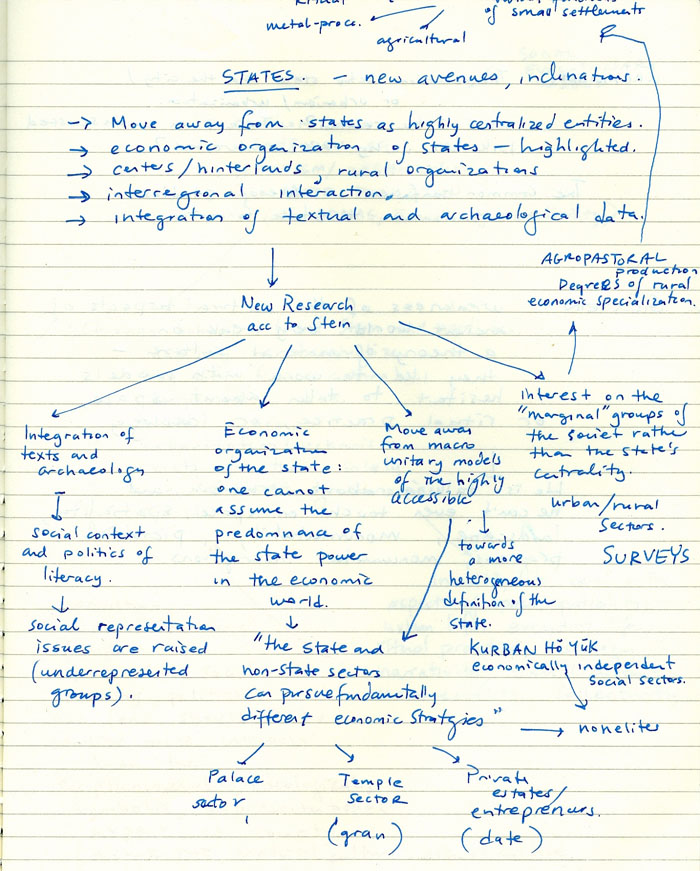 metal-proc.
agricultural
of small settlements
STATES. - new avenues, inclinations.
-> Move away from states as highly centralized entities.
-> economic organization of states - highlighted.
-> centers/hinterlands, rural organizations
-> interregional interaction.
-> integration of textual and archaeological data.
AGROPASTORAL
production
Degrees of rural
economic specialization.
New Research
acc to Stein
Integration of
texts and
archaeology
social context
and politics of
literacy.
social representation
issues are raised
(underrepresented
groups).
Economic
organization
of the state:
one cannot
assume the
predomnance of
the state power
in the economic
world.
"the State and
non-state sectors
can pursue fundamentally
different economic Strategies"
Move away
from macro
unitary models
of the highly
accessible
towards
a more
heterogeneous
definition of the
state.
Interest on the
"marginal" groups of
the soviet rathe
than the state's
centrality.
urban/rural
Sectors.
SURVEYS
KURBAN HÖYÜK
economically independent
social sectors.
nonelites
Palace
sector
Temple
SECTOR
(gran)
Private
estates/
entreprenurs.
(date)